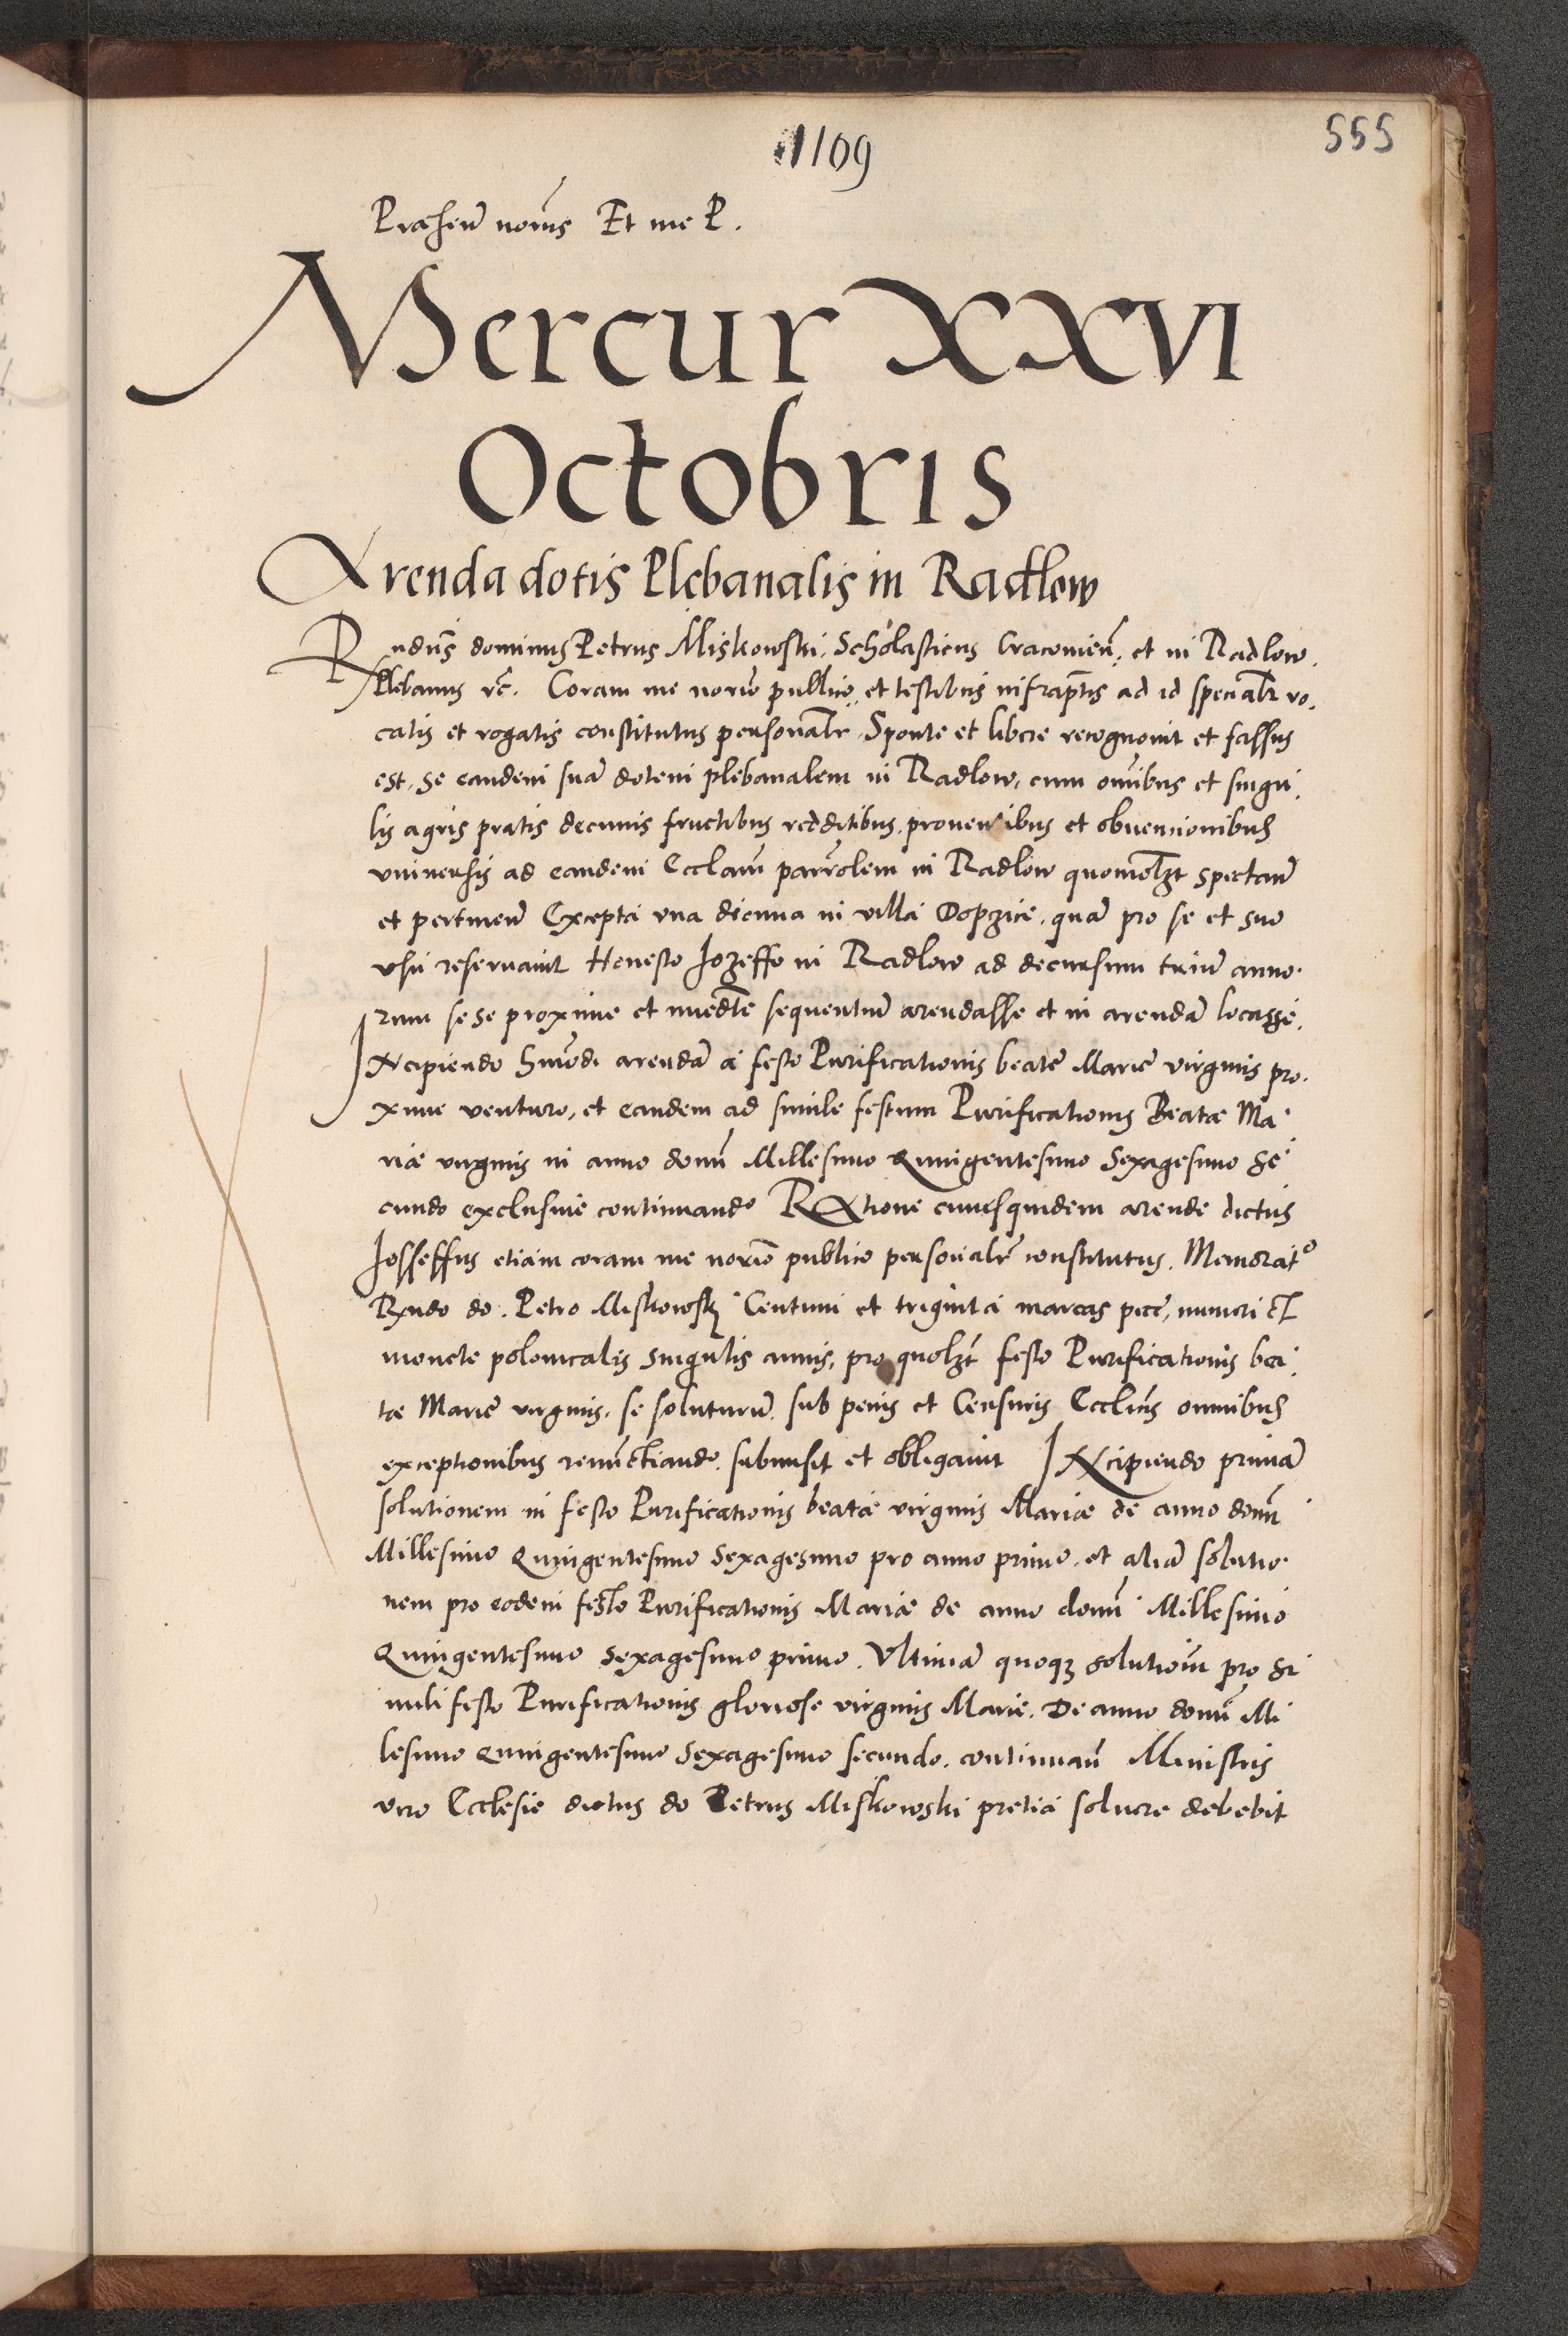 1109
555
Præsen̄ noriis Et me P.
Mercur XXVI
Octobris
Arenda dotis Plebanalis in Radlow
Rndus dominus Petrus Miskowski, Scholasticus Cracovien̄, et in Radlow,
Plebanus rc̄. Coram me norio publico, et testibus infraptis ad id specialr vo,
catis et rogatis constitutus personalr, Sponte et libere recognouit et fassus
est, se eandem suā dotem plebanalem in Radlow, cum omībus et singu,
lis agris pratis decimis fructibus redditibus, prouentibus et obuencionibus
vniuersis ad eandem Ecclām parrolem in Radlow quomolzt spectan̄
et pertinen̄ Excepta vna decima in villa Dopzice, quā pro se et suo
vsu reseruauit Honesto Jozeffo in Radlow ad decursum triū anno.
rum sese proxime et īmedte sequentiū arendasse et in arendā locasse,
INcipiendo Hmōdi arendā a festo Purificationis beate Marie virginis pro.
xime venturo, et eandem ad simile festum Purificationis Beatæ Ma
riæ virginis in anno domī Millesimo Quingentesimo Sexagesimo Se
cundo exclusiue continuando RAtione cuiusquidem arende dictus
Josseffus etiam coram me norio publico personalr constitutus, Memorato
Rndo do. Petro Miskowskj Centum et triginta marcas pecc, numeri et
monete polonicalis singulis annis, pro quolzt festo Purificationis bea,
tæ Marie virginis, se soluturū, sub penis et Censuris Ecclīis omnibus
exceptionibus renūctiando, submisit et obligauit INcipiendo primā
solutionem in festo Purificationis beatæ virginis Mariæ de anno domī
Millesimo Quingentesimo Sexagesimo pro anno primo, et aliā solutio.
nem pro eodem festo Purificationis Mariæ de anno domī Millesimo
Quingentesimo Sexagesimo primo. Vltimā quoqz solutiom̄ pro si
mili festo Purificationis gloriose virginis Marie. De anno domī Mi
lesimo Quingentesimo Sexagesimo secundo. continuan̄ Ministris
vero Ecclesie dictus do Petrus Miskowski pretia soluere debebit